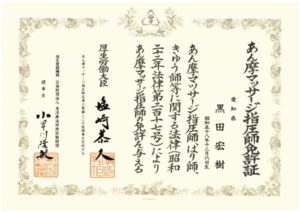 あん摩マッサージ指圧師免許証
愛知県
黒田宏樹
昭和五十八年十二月六日生
あん摩マッサージ指圧師、はり師、
きゅう師等に関する法律（昭和
二十二年法律第二百十七号）により
あん摩マッサージ指圧師の免許を与える
厚生労働大臣
塩崎恭久
理事長